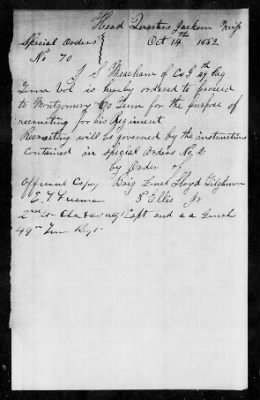 Head Quarters Jackson Miss
Special Orders Oct 14th 1862
No 70
J S Meacham of Co G 49 Reg
Tenn Vol is hereby ordered to proceed
to Montgomery Co Tenn for the purpose of
recruiting for his Regiment
Recruiting will be governed by the instructions
contained in Special Orders No 2
by Order of
Official Copy Brig Genl Lloyd Tilghman
E. T. Freeman P Ellis Jr
Capt and a a Genl
49th Ten Regt